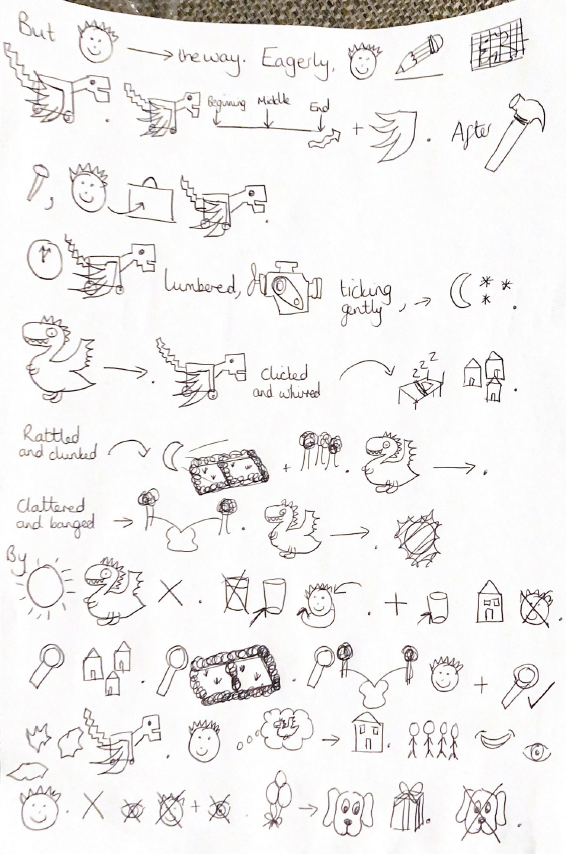 But the way. Eagerly,
Beginning Middle End
+ . After
,
lumbered, ticking gently, 
Z Z Z
Clicked and whirred
Rattled and clunked
+
Clattered and banged
By
+
+
+